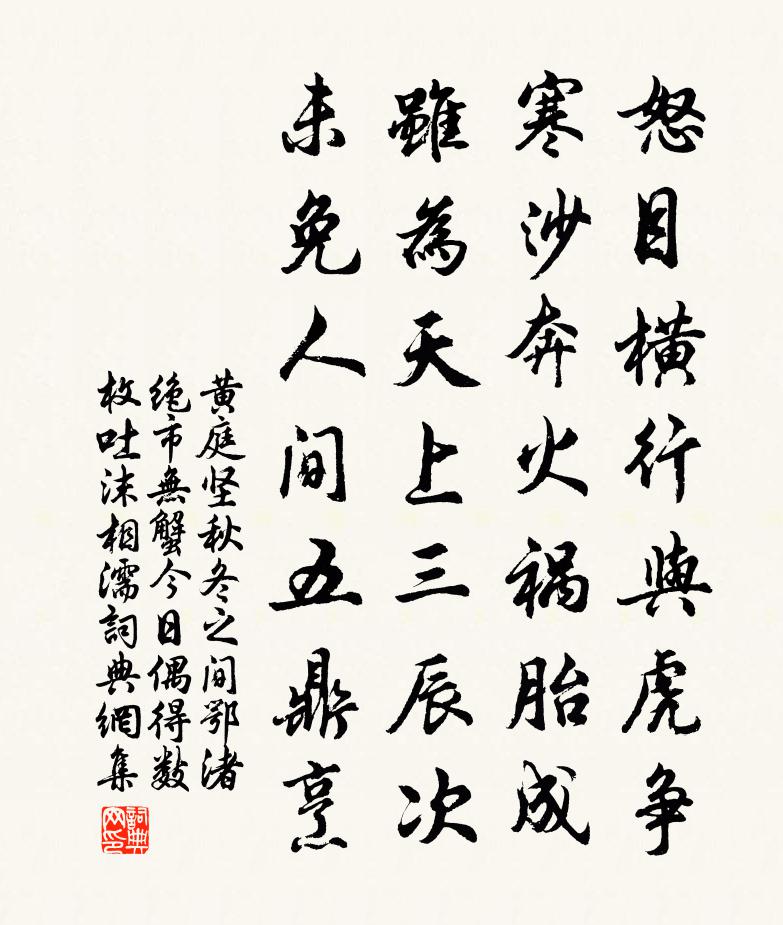 怒目橫行與虎爭
寒沙奔火禍胎成
雖為天上三辰次
未免人間五鼎烹
黃庭坚秋冬之间鄂渚
绝市無蟹今日偶得数
枚吐沫相濡詞典網集
詞典网印